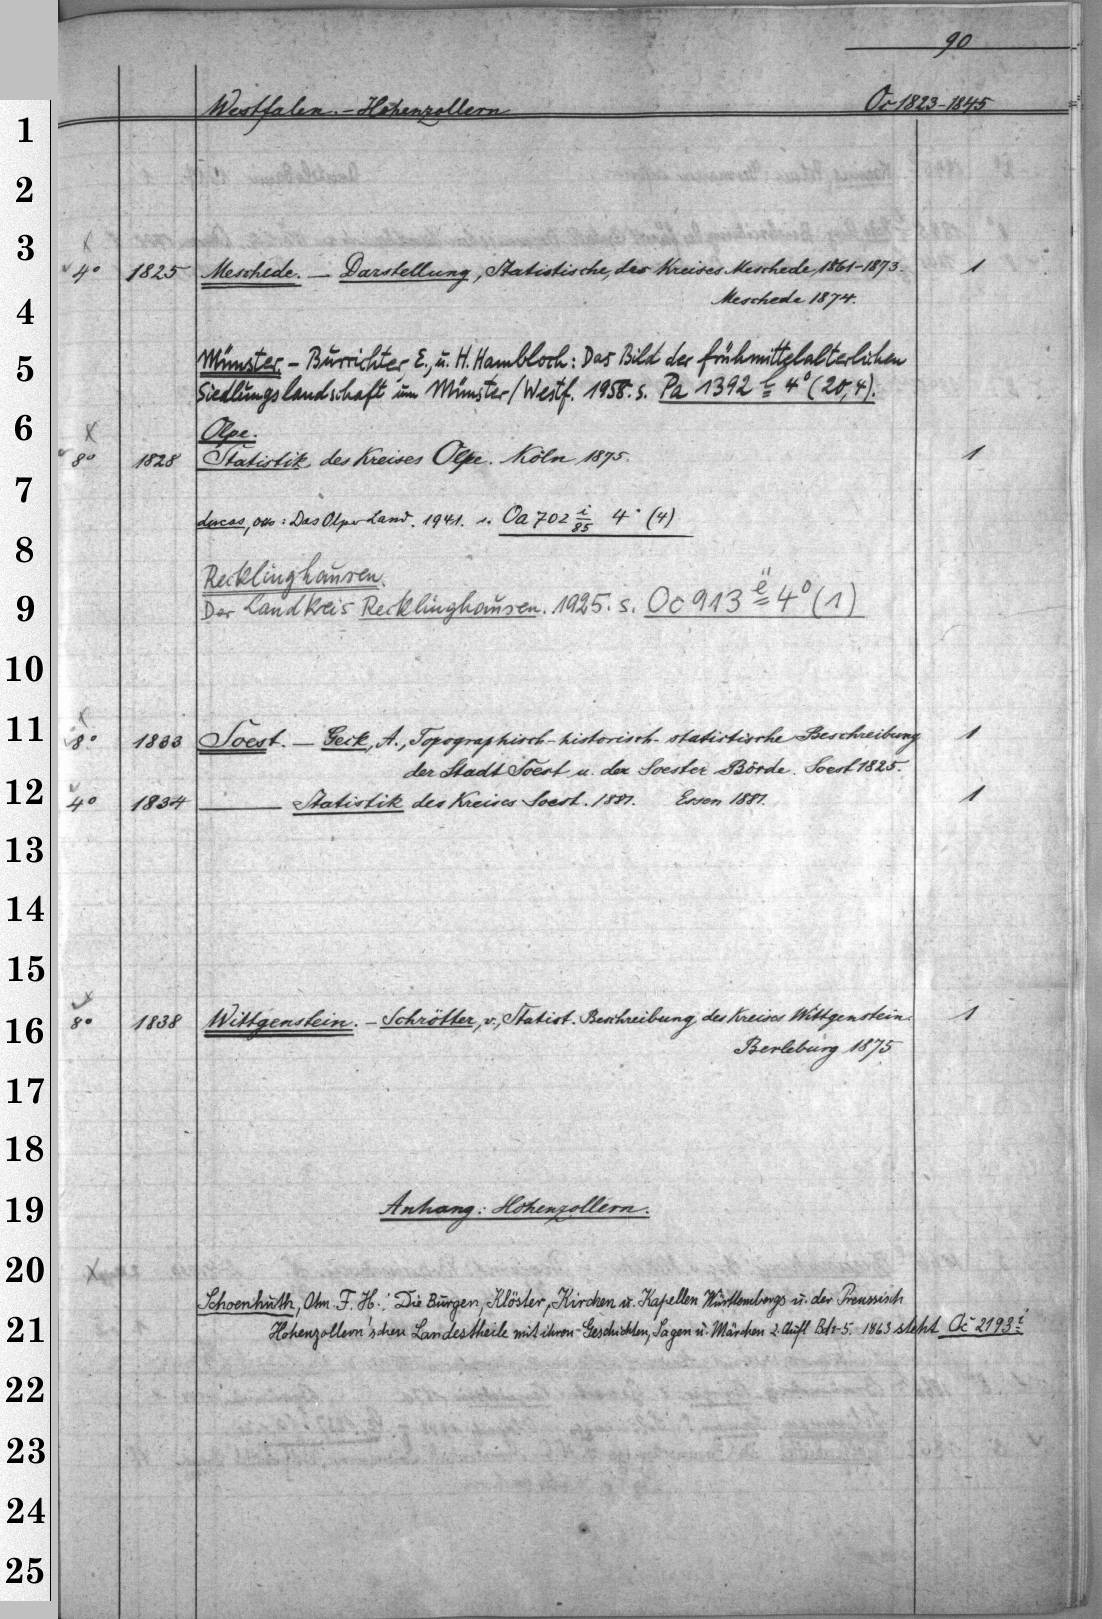 90
Westfalen. - Hohenzollern Oc 1823-1845
1
2
3
4° 1825 Meschede. — Darstellung, Statistische, des Kreises Meschede, 1861-1873. 1
Meschede 1874.
4
5
Münster - Burrichter E., u. H. Hambloch: Das Bild der frühmittelalterlichen
Siedlungslandschaft um Münster/Westf. 1958. s. Pa 1392 4° (20,4).
6
Olpe.
8° 1828 Statistik des Kreises Olpe. Köln 1875. 1
7
Lucas, Otto: Das Olper Land. 1941. s. Oa 702 i/85 4° (4)
8
Recklinghausen.
9
Der Landkreis Recklinghausen. 1925. s. Oc 913 ë 4° (1)
10
11
8° 1833 Soest. — Geck, A., Topographisch-historisch-statistische Beschreibung 1
der Stadt Soest u. der Soester Börde. Soest 1825.
12
4° 1834 ——— Statistik des Kreises Soest. 1881. Essen 1881. 1
13
14
15
16
8° 1838 Wittgenstein. - Schrötter, v., Statist. Beschreibung des Kreises Wittgenstein. 1
Berleburg 1875
17
18
19
Anhang: Hohenzollern.
20
Schoenhuth, Otm. F. H.: Die Burgen, Klöster, Kirchen u. Kapellen Württembergs u. der Preussisch
21
Hohenzollern'schen Landestheile mit ihren Geschichten, Sagen u. Märchen 2. Aufl Bd 1-5. 1863 steht Oc 2193 i
22
23
24
25